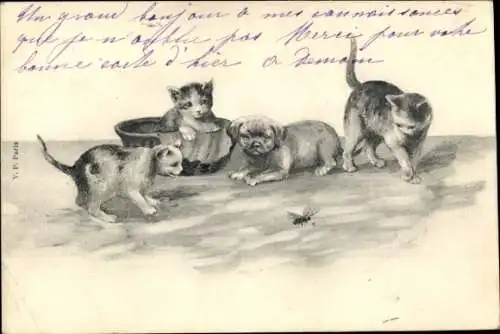 Un grand bonjour à mes connaissances
que je n'oublie pas Merci pour votre
bonne carte d'hier à Demain
V. P. Paris